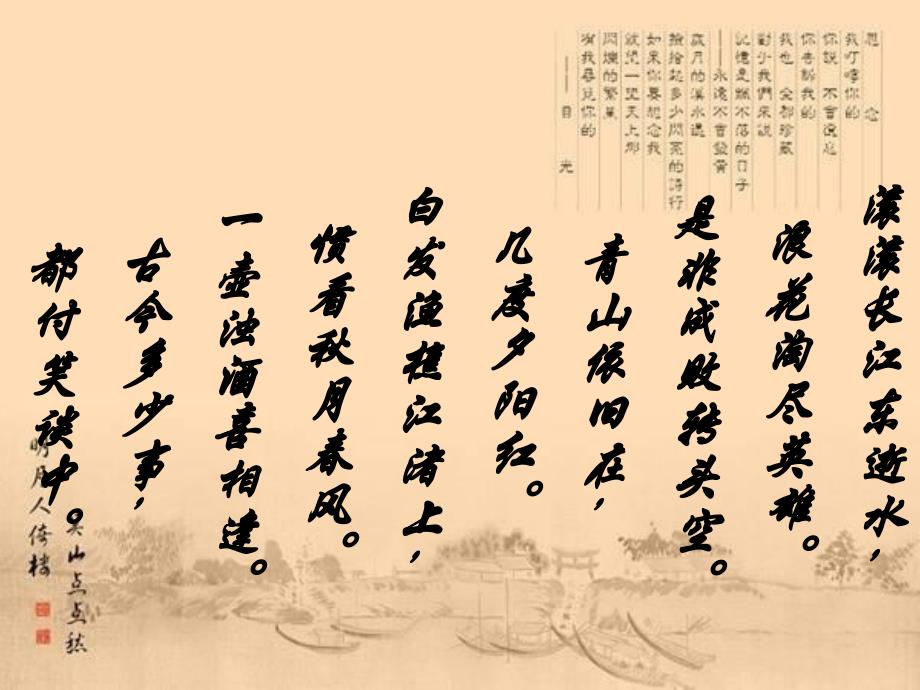 滚滚长江东逝水，
浪花淘尽英雄。
是非成败转头空。
青山依旧在，
几度夕阳红。
白发渔樵江渚上，
惯看秋月春风。
一壶浊酒喜相逢。
古今多少事，
都付笑谈中。
思 念
我叮嚀你的
你說 不會遺忘
你告訴我的
我也 全都珍藏
對於我們來說
記憶是飄不落的日子
——永遠不會發黃
歲月的溪水邊
撿拾起多少閃亮的詩行
如果你要想念我
就望一望天上那
閃爍的繁星
有我尋覓你的
——目 光
吴山点点愁
明月人倚楼